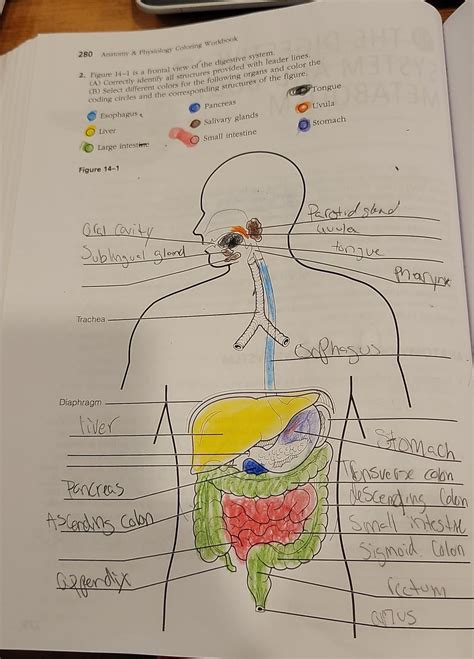 280 Anatomy & Physiology Coloring Workbook
2. Figure 14-1 is a frontal view of the digestive system.
(A) Correctly identify all structures provided with leader lines.
(B) Select different colors for the following organs and color the
coding circles and the corresponding structures of the figure.
Esophagus
Pancreas
Tongue
Liver
Salivary glands
Uvula
Large intestine
Small intestine
Stomach
Figure 14-1
Parotid gland
Oral cavity
uvula
Sublingual gland
tongue
Pharynx
Trachea
esophagus
Diaphragm
liver
Stomach
Transverse colon
Pancreas
descending colon
Ascending colon
Small intestine
Sigmoid colon
appendix
rectum
anus